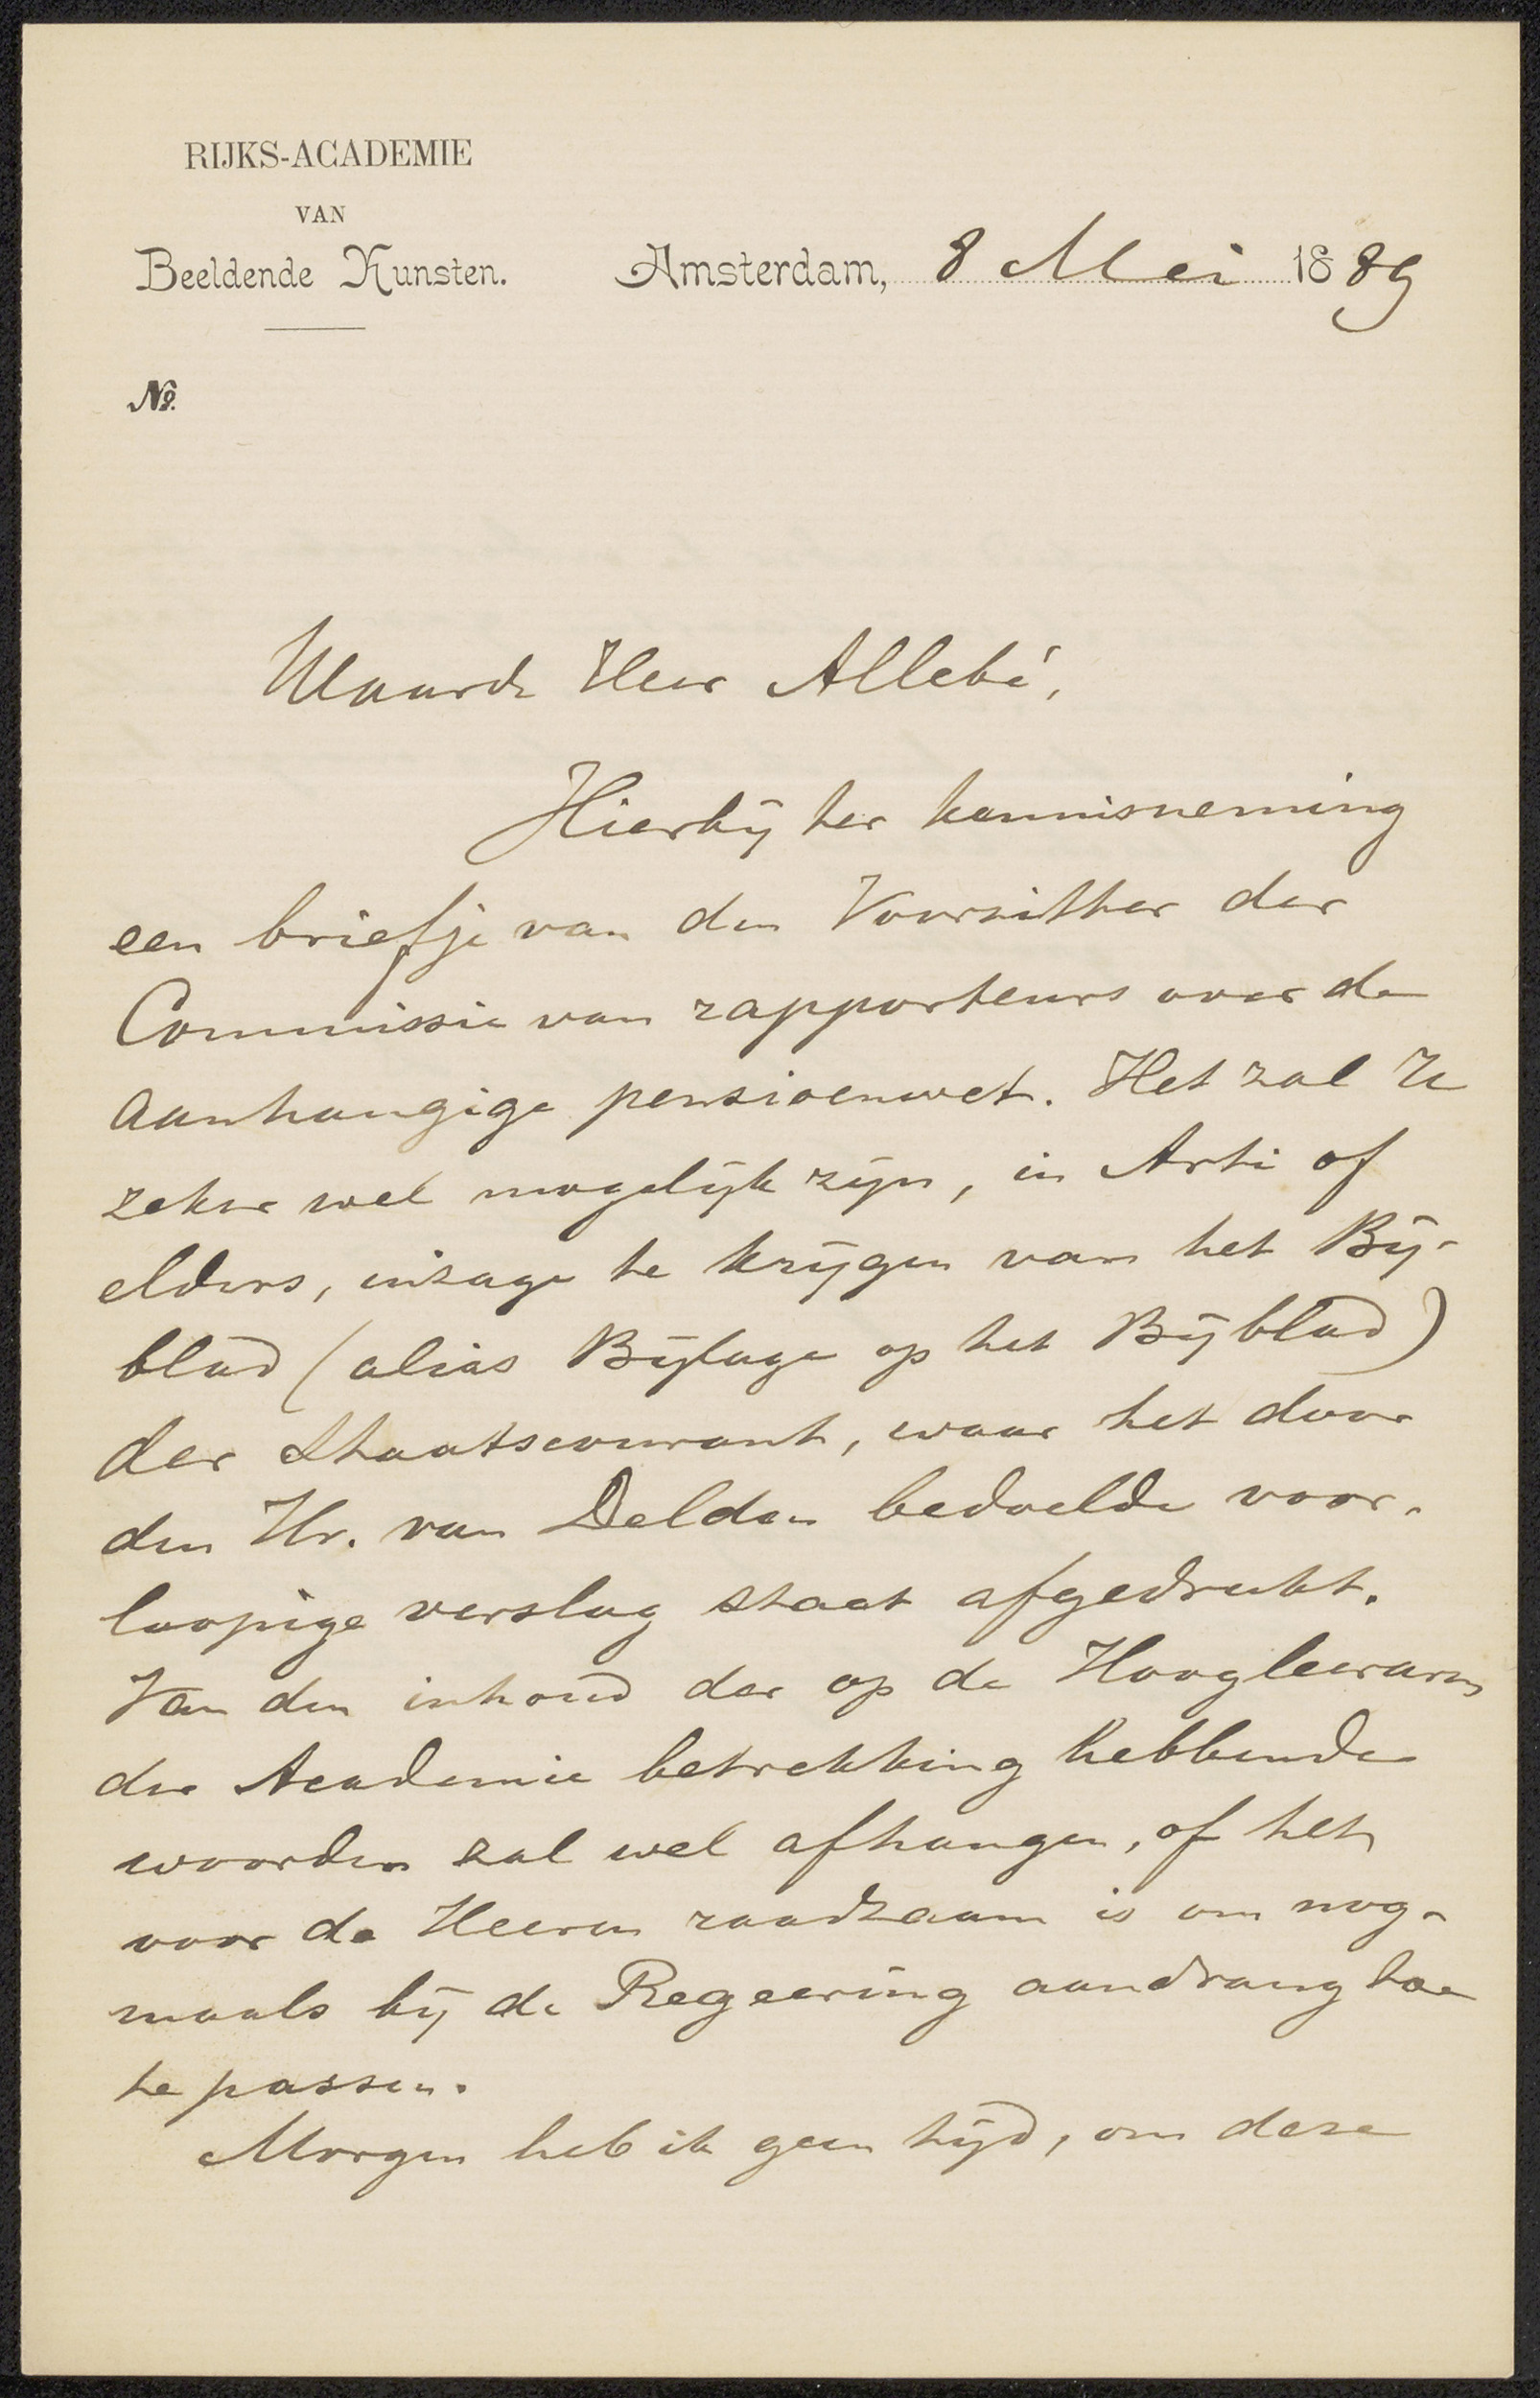 RIJKS-ACADEMIE
VAN
Beeldende Kunsten.
Amsterdam, 8 Mei 1889
No.
Waarde Heer Allebé,
Hierbij ter kennisneming
een briefje van den Voorzitter der
Commissie van rapporteurs over de
aanhangige pensioenwet. Het zal U
zeker wel mogelijk zijn, in Arti of
elders, inzage te krijgen van het Bij-
blad (alias Bijlage op het Bijblad)
der Staatscourant, waar het door
den Hr. van Delden bedoelde voor-
loopige verslag staat afgedrukt.
Van den inhoud der op de Hoogleeraren
der Academie betrekking hebbende
woorden zal wel afhangen, of het
voor de Heeren raadzaam is om nog-
maals bij de Regeering aandrang toe
te passen.
Morgen heb ik geen tijd, om deze